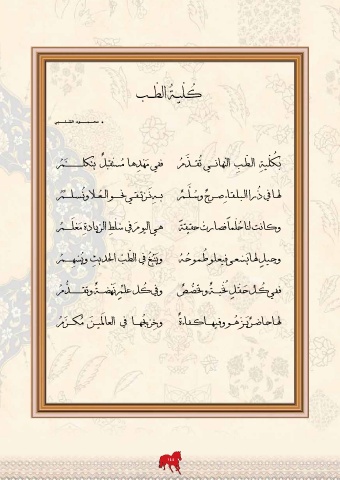 كُلّيّةُ الطّب
بكُلّيةِ الطّبِ التّهاني تُقدَّمُ ففي مَهدِها مُستقبلٌ يتكلّمُ
لها في ذُرا البلقاءِ صرحٌ وسُلَّمُ به نَرتقي نحوَ العُلا ونُسلَّمُ
وكانت لنا حُلماً فصارت حقيقةً هي اليومَ في سَلطِ الريادةِ مَعْلَمُ
وجيلٍ لها يَسعى فيعلو طُموحُهُ في الطّبِّ الحديثِ ويُسهِمُ
ففي كُلِّ حقلٍ نُخبةٌ وتَخصُّصٌ وفي كُلِّ علمٍ نهضةٌ وتقدُّمُ
لها حاضرٌ يَزهو وفيها كفاءةٌ وخرّيجُها في العالَمينَ مُكرَّمُ